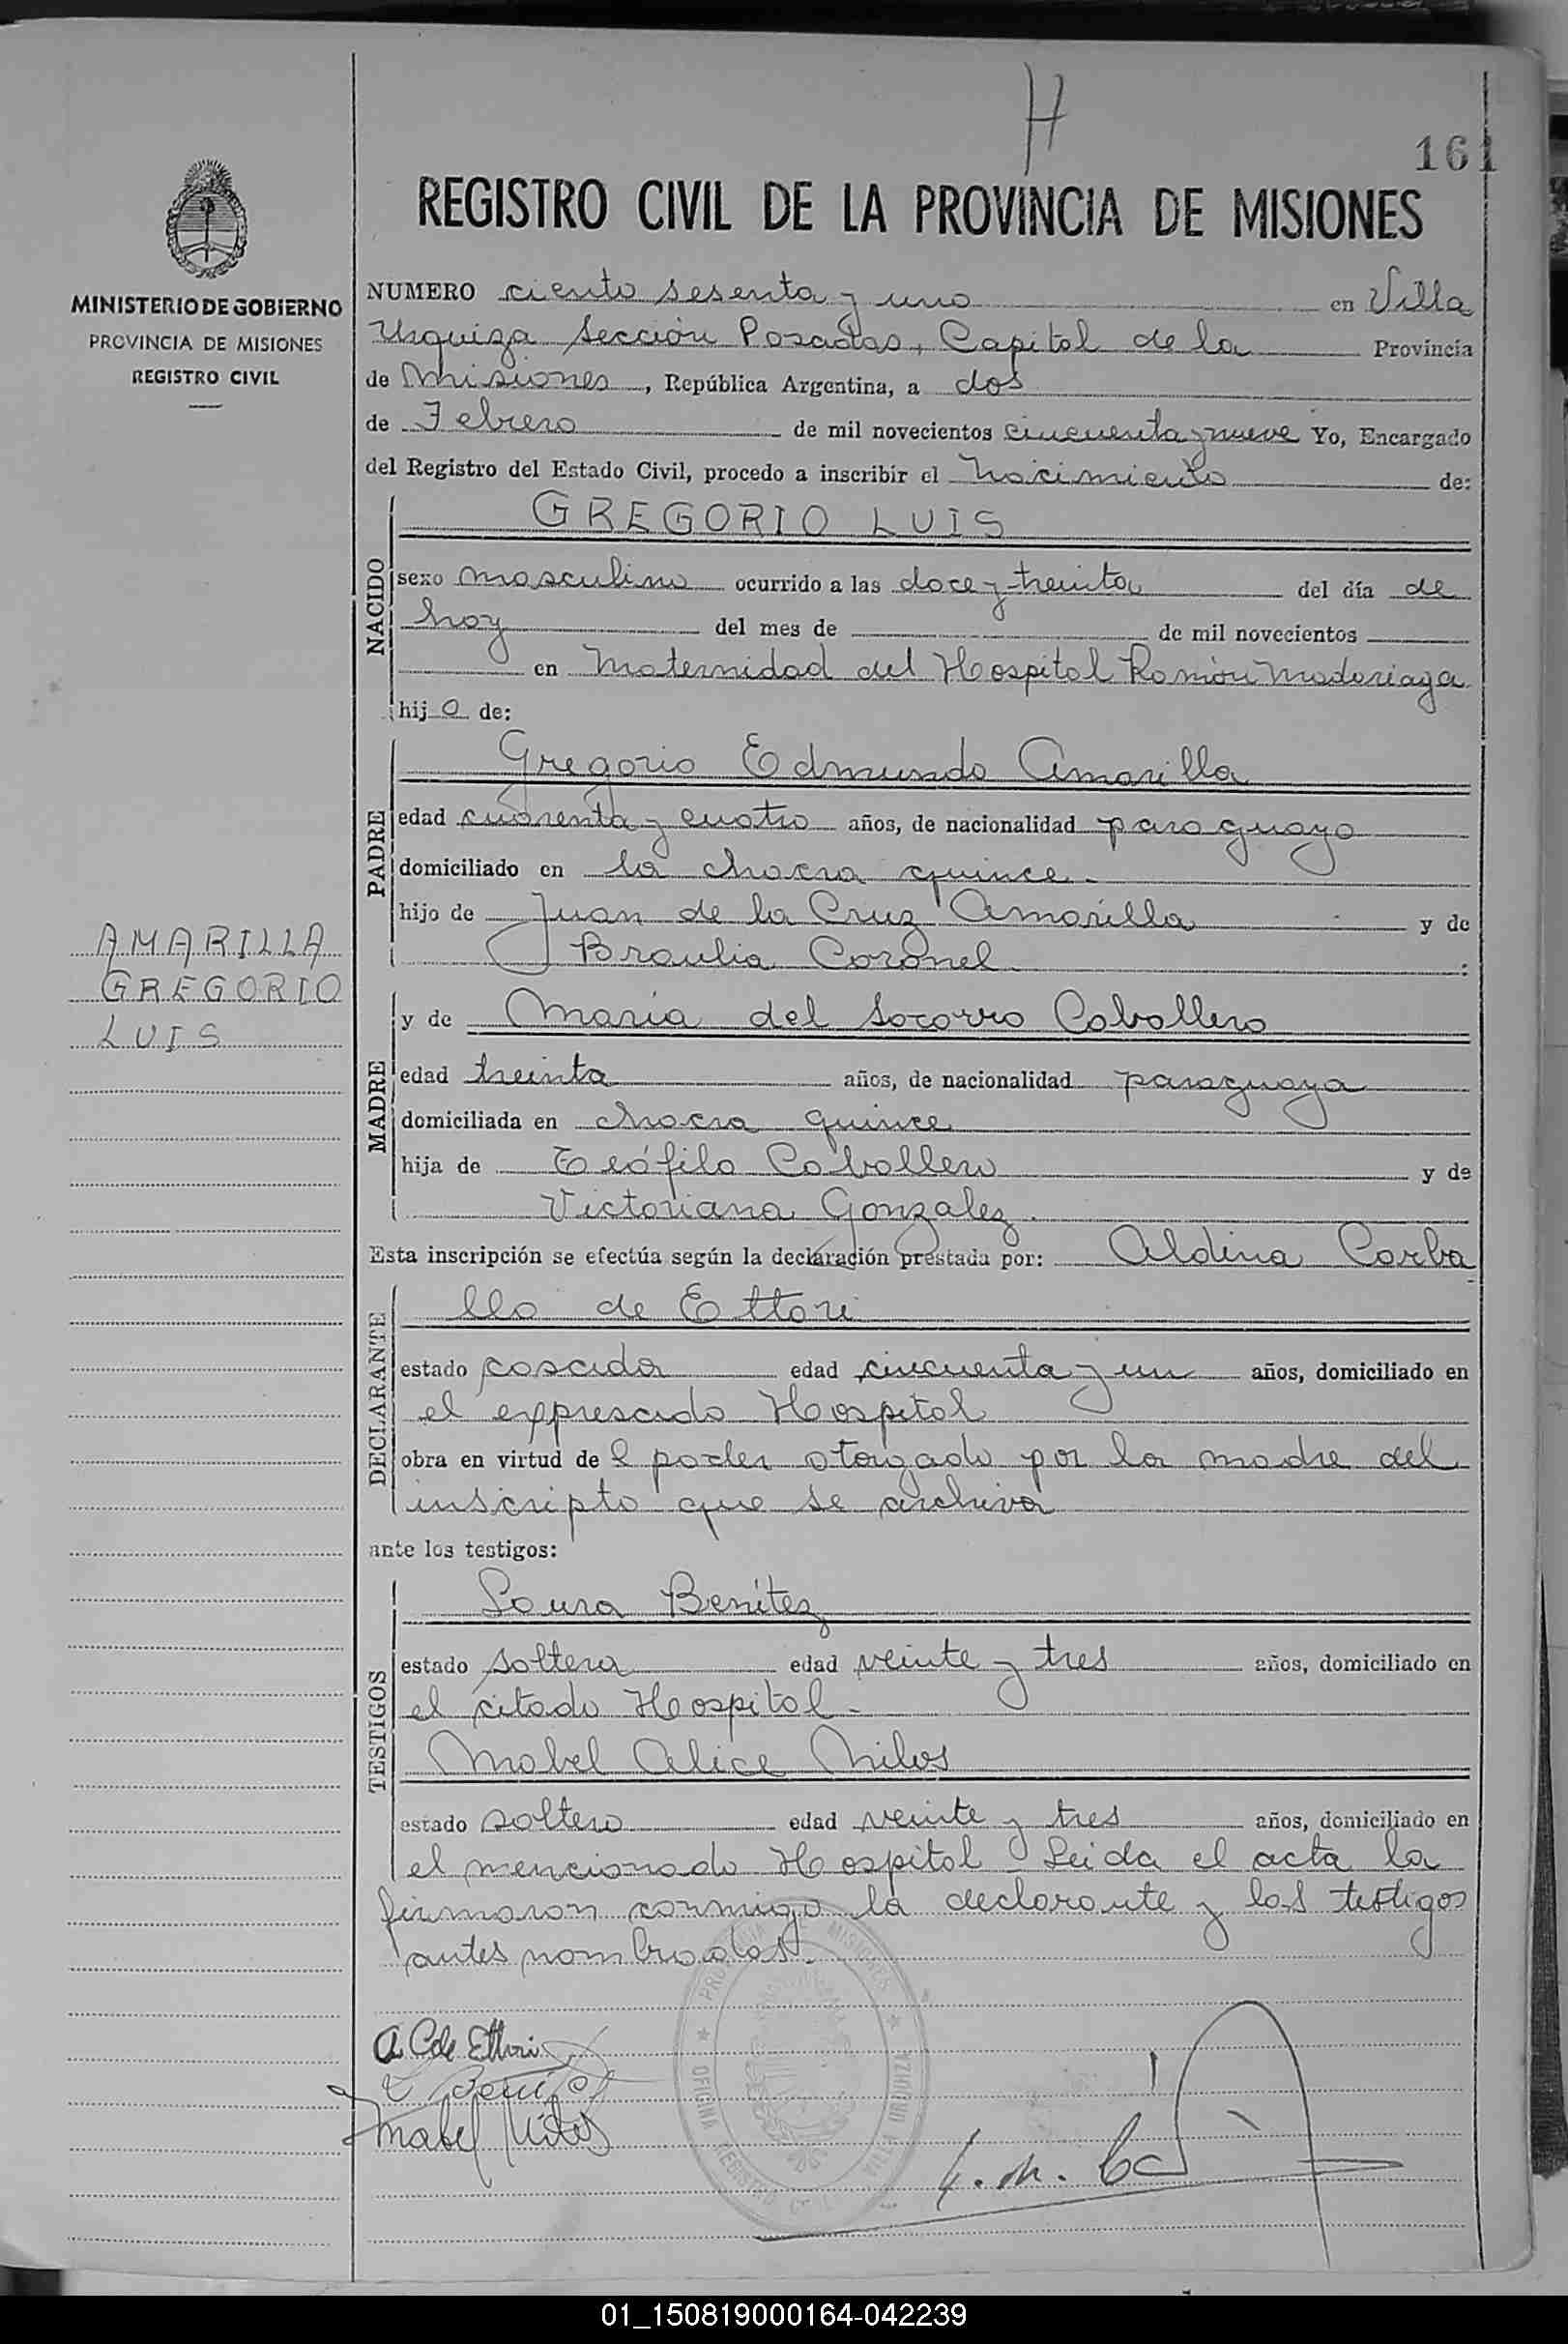 H
161
REGISTRO CIVIL DE LA PROVINCIA DE MISIONES
MINISTERIO DE GOBIERNO
PROVINCIA DE MISIONES
REGISTRO CIVIL
NUMERO ciento sesenta y uno en Villa
Urquiza Sección Posadas, Capital de la Provincia
de Misiones, República Argentina, a dos
de Febrero de mil novecientos cincuenta y nueve Yo, Encargado
del Registro del Estado Civil, procedo a inscribir el Nacimiento de:
NACIDO
GREGORIO LUIS
sexo masculino ocurrido a las doce y treinta del día de
hoy del mes de de mil novecientos
en Maternidad del Hospital Ramón Madariaga
hijo de:
PADRE
Gregorio Edmundo Amarilla
edad cuarenta y cuatro años, de nacionalidad paraguayo
domiciliado en la chacra quince.
hijo de Juan de la Cruz Amarilla y de
Braulia Coronel.
AMARILLA
GREGORIO
LUIS
MADRE
y de Maria del Socorro Caballero
edad treinta años, de nacionalidad paraguaya
domiciliada en chacra quince
hija de Teófilo Caballero y de
Victoriana Gonzalez.
Esta inscripción se efectúa según la declaración prestada por: Aldina Carba
DECLARANTE
llo de Ettori
estado casada edad cincuenta y un años, domiciliado en
el expresado Hospital
obra en virtud del poder otorgado por la madre del
inscripto que se archiva
ante los testigos:
TESTIGOS
Laura Benítez
estado soltera edad veinte y tres años, domiciliado en
el citado Hospital-
Mabel Alice Milos
estado soltera edad veinte y tres años, domiciliado en
el mencionado Hospital - Leida el acta la
firmaron conmigo la declarante y las testigos
antes nombradas.
PROVINCIA DE MISIONES
OFICINA REGISTRO CIVIL VILLA URQUIZA
A C de Ettori
Mabel Milos
01_150819000164-042239